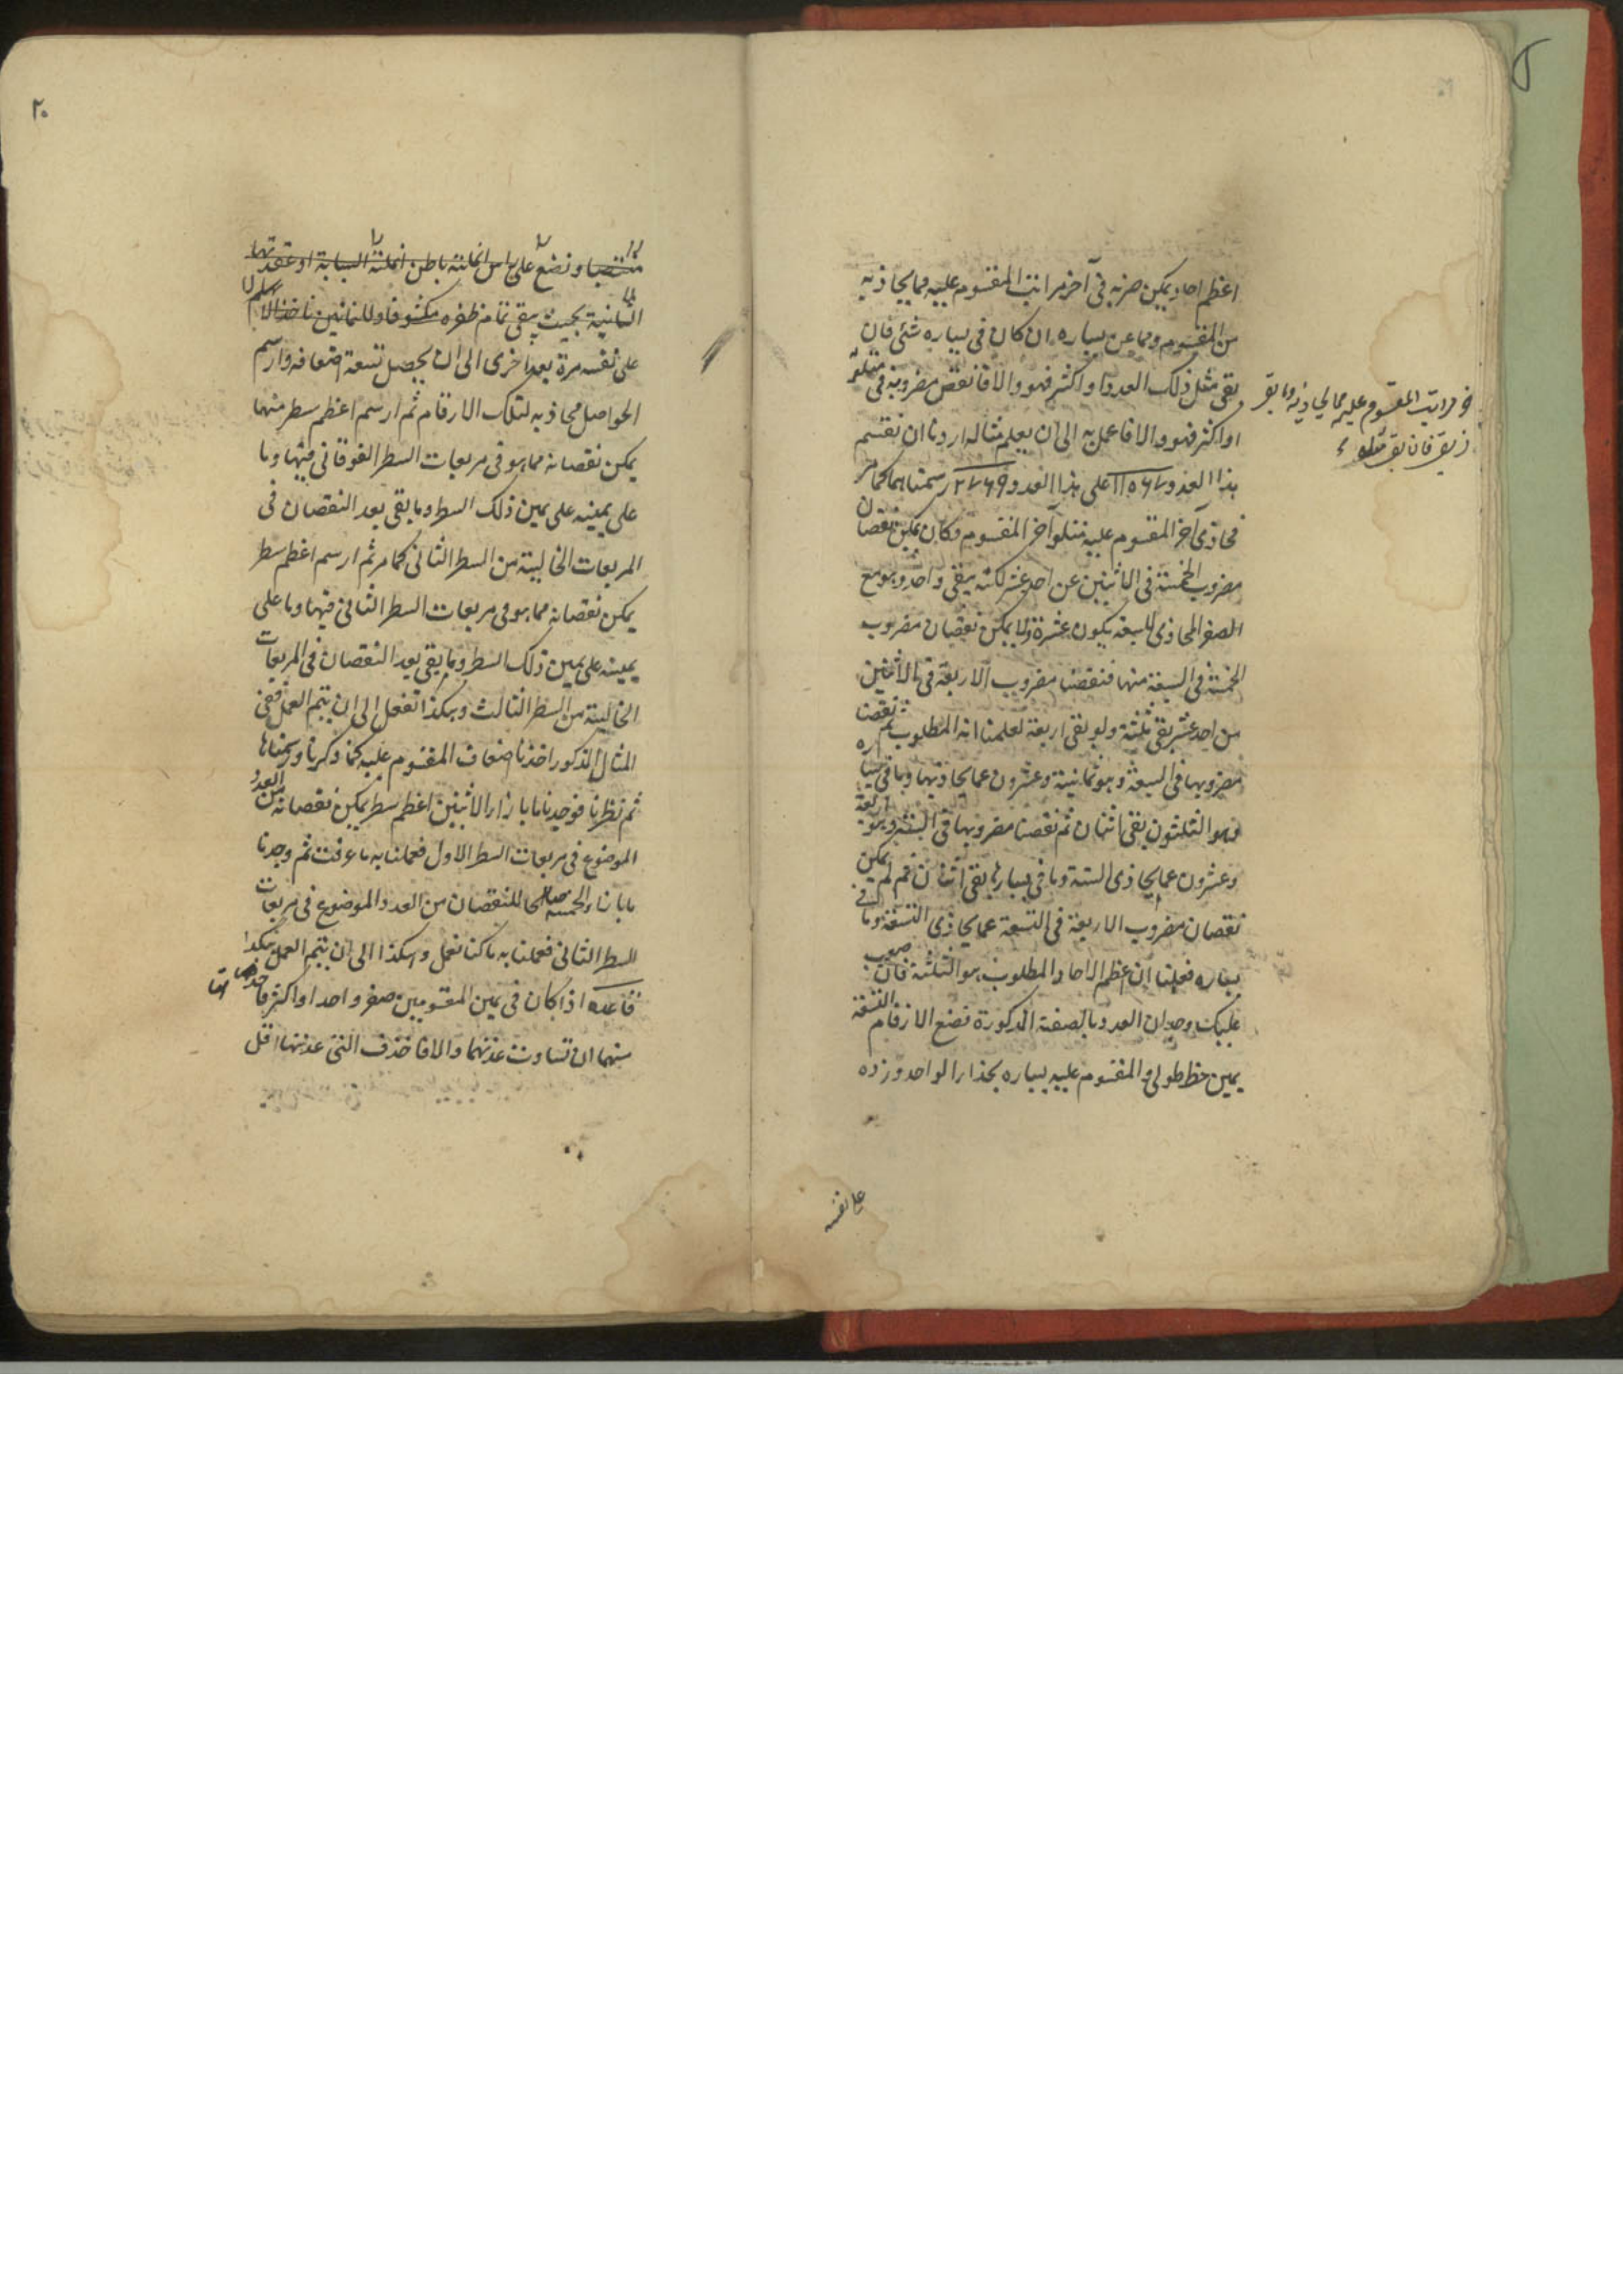 اعظم احاد يمكن ضربه فى آخر مراتب المقسوم عليه مما يحاذيه
من المقسوم ومما عن يساره ان كان فى يساره شئ فان
بقى مثل ذلك العدد او اكثر فهو والا فانقص مضروبه فى متلو
او اكثر فهو والا فاعمل به الى ان يعلم مثاله اردنا ان نقسم
هذا العدد على هذا العدد رسمناهما كما مر
فحاذى آخر المقسوم عليه متلو آخر المقسوم وكان يمكن نقصان
مضروب الخمسة فى الاثنين عن احد عشر لكنه يبقى واحد وهو مع
الصفر المحاذى للسبعة يكون عشرة ولا يمكن نقصان مضروب
الخمسة فى السبعة منها فنقصنا مضروب الاربعة فى الاثنين
من احد عشر بقى ثلثة ولو بقى اربعة لعلمنا انه المطلوب ثم نقصنا
مضروبها فى السبعة وهو ثمانية وعشرون عما يحاذيها وما فى يساره
وهو الثلثون بقى اثنان ثم نقصنا مضروبها فى الستة وهو اربعة
وعشرون عما يحاذى الستة وما فى يسارها بقى اثنان ثم لم يمكن
نقصان مضروب الاربعة فى التسعة عما يحاذى التسعة وما فى
يساره فعلمنا ان اعظم الاحاد المطلوب هو الثلثة فان صعب
عليك وجدان العدد بالصفة المذكورة فضع الارقام التسعة
يمين خط طولى والمقسوم عليه يساره بحذاء الواحد وزده
على نفسه
فى مراتب المقسوم عليه مما يحاذيه وما بقى
فان بقى مثله
٢٠
منتصبا وتضع على راس انملته باطن انملة السبابة او عقدتها
الثانية بحيث يبقى تمام ظفره مكشوفا وللثمانين تاخذ الابهام
على نفسه مرة بعد اخرى الى ان يحصل تسعة اضعافه وارسم
الحواصل محاذيه لتلك الارقام ثم ارسم اعظم سطر منها
يمكن نقصانه مما هو فى مربعات السطر الفوقانى فيها وما
على يمينه على يمين ذلك السطر وما بقى بعد النقصان فى
المربعات الخالية من السطر الثانى كما مر ثم ارسم اعظم سطر
يمكن نقصانه مما هو فى مربعات السطر الثانى فيها وما على
يمينه على يمين ذلك السطر وما بقى بعد النقصان فى المربعات
الخالية من السطر الثالث وهكذا تفعل الى ان يتم العمل ففى
المثال المذكور اخذنا اضعاف المقسوم عليه كما ذكرنا ورسمناها
ثم نظرنا فوجدنا ما بازاء الاثنين اعظم سطر يمكن نقصانه من العدد
الموضوع فى مربعات السطر الاول فعملنا به ما عرفت ثم وجدنا
ما بازاء الخمسة صالحا للنقصان من العدد الموضوع فى مربعات
السطر الثانى فعملنا به ما كنا نعمل وهكذا الى ان يتم العمل هكذا
قاعدة اذا كان فى يمين المقسومين صفر واحد او اكثر فاحذفها
منهما ان تساوت عدتهما والا فاحذف التى عدتها اقل